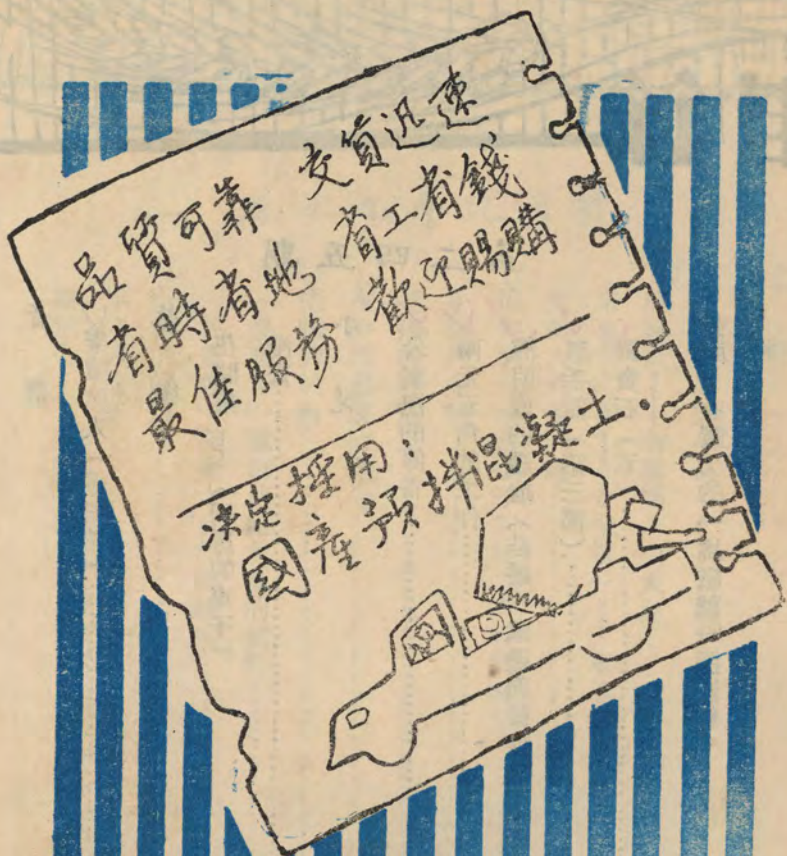 品質可靠 交貨迅速
省時省地 省工省錢
最佳服務 歡迎賜購
決定採用：
國產預拌混凝土．